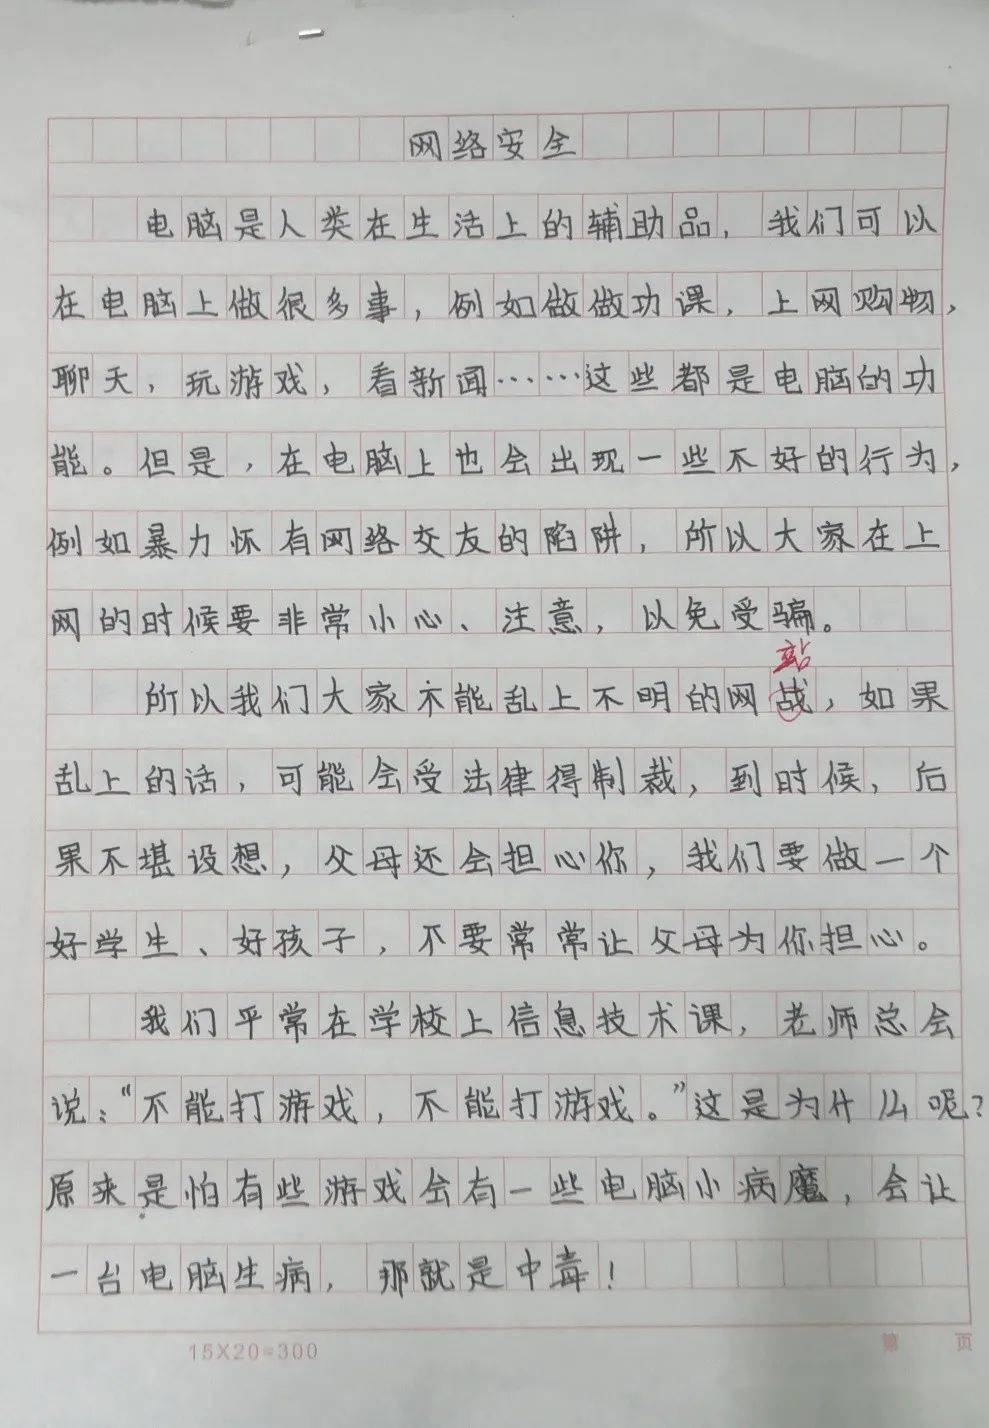 网络安全
电脑是人类在生活上的辅助品，我们可以
在电脑上做很多事，例如做做功课，上网购物，
聊天，玩游戏，看新闻……这些都是电脑的功
能。但是，在电脑上也会出现一些不好的行为，
例如暴力怀有网络交友的陷阱，所以大家在上
网的时候要非常小心、注意，以免受骗。
站
所以我们大家不能乱上不明的网战，如果
乱上的话，可能会受法律得制裁，到时候，后
果不堪设想，父母还会担心你，我们要做一个
好学生、好孩子，不要常常让父母为你担心。
我们平常在学校上信息技术课，老师总会
说：“不能打游戏，不能打游戏。”这是为什么呢？
原来是怕有些游戏会有一些电脑小病魔，会让
一台电脑生病，那就是中毒！
15X20=300
第 页